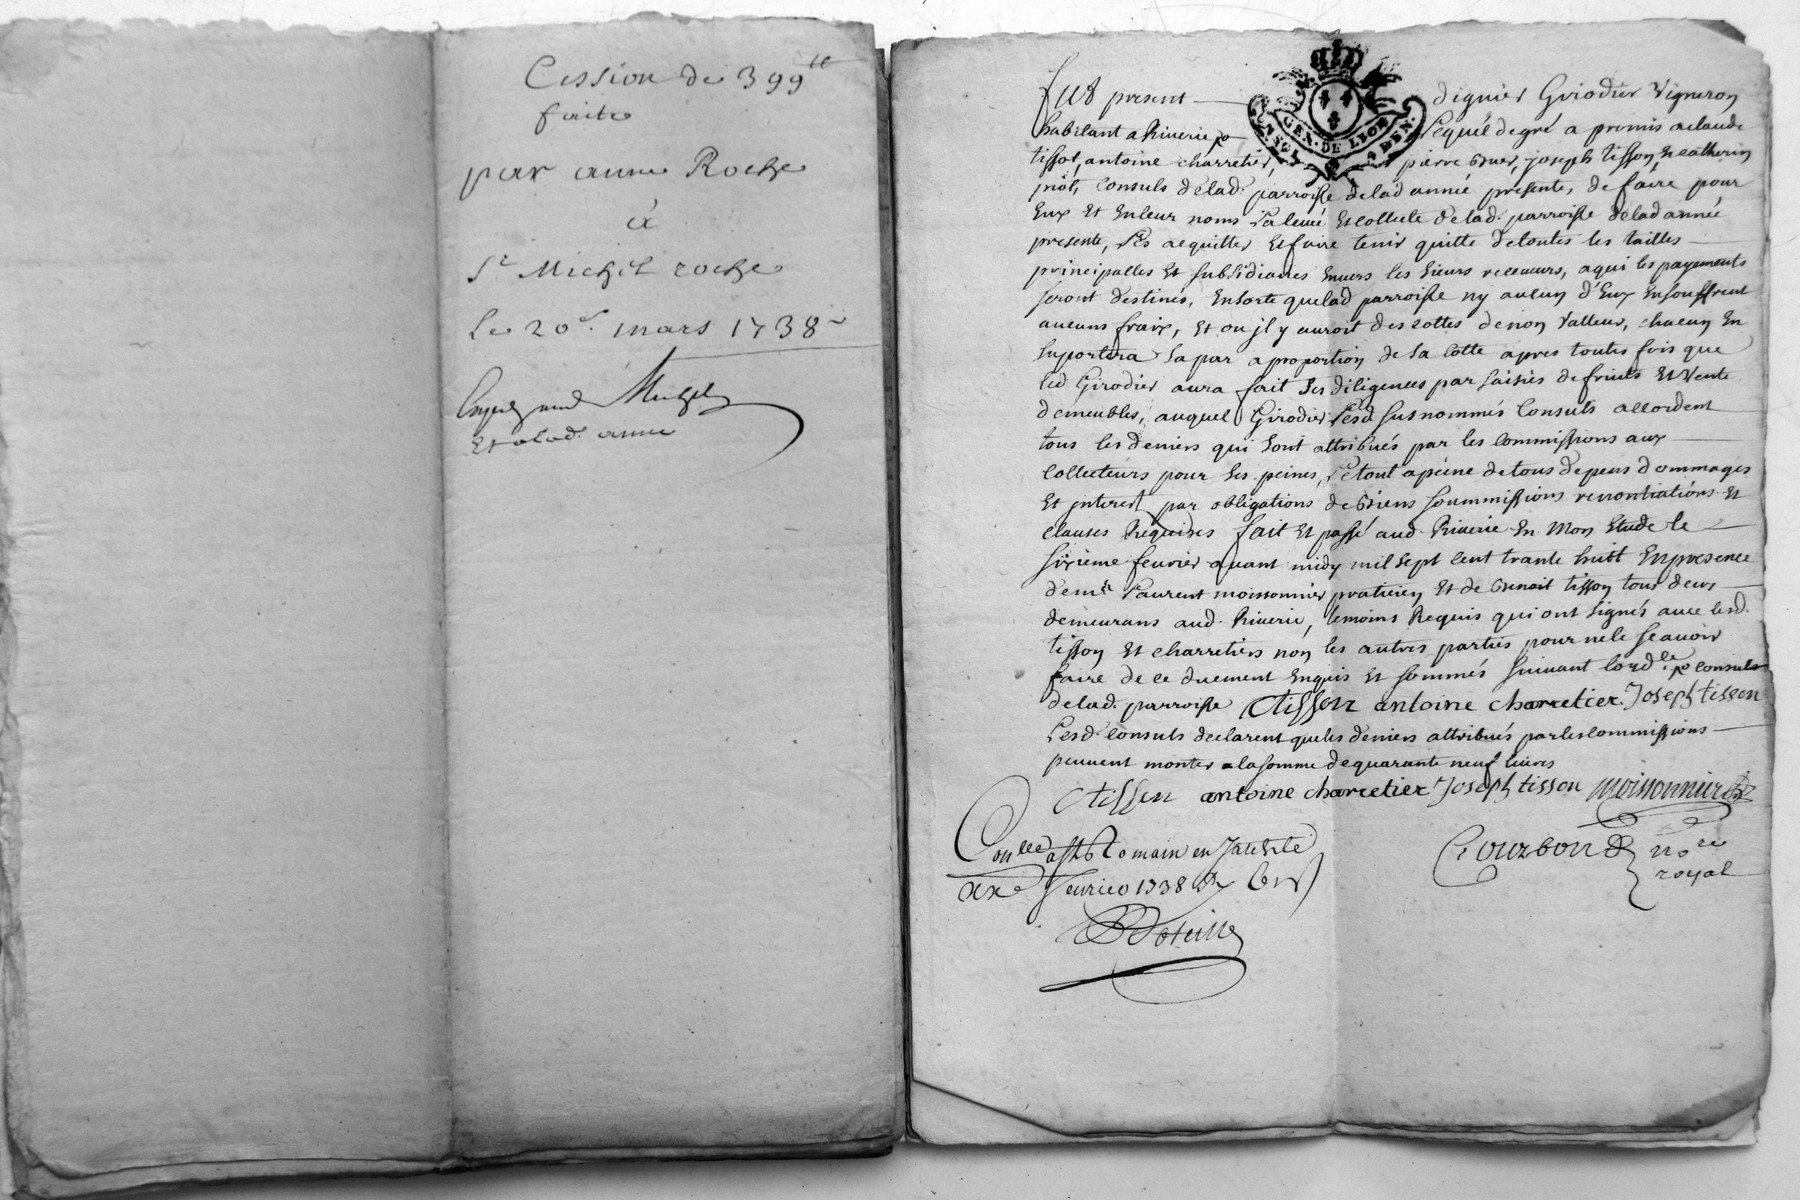 Cession de 399ᵗᵗ
faite
par anne Roche
à
Sʳ Michel roche
Le 20ᵉ. mars 1738
Et alad. anne
GEN. DE LYON
Fut present dignier Griodier Vigneron
habitant a Riverie Lequel de gré a promis a claude
tissot, antoine charretier, pierre Bruer, joseph tisson, Et catherin
consuls de lad. parroisse de lad année presente, de faire pour
Eux Et En leur noms La levée Et collecte de lad. parroisse de lad année
presente, Les acquitter Et faire tenir quitte de toutes les tailles
principalles Et subsidiaires Envers les sieurs receveurs, a qui les payements
seront destinés, En sorte que lad parroisse ny aucun d'Eux En souffrent
aucuns fraix, Et ou jl y auroit des cottes de non valleur, chacun En
suportera sa par a proportion de sa cotte apres toutes fois que
led Girodier aura fait ses diligences par saisies de fruits Et vente
de meubles, auquel Girodier Lesd susnommés Consuls accordent
tous les deniers qui sont attribués par les commissions aux
Collecteurs pour ses peines, Le tout a peine de tous depens dommages
Et jnterest par obligations de biens soummissions renontiations Et
clauses Requises fait Et passé aud. Riverie En Mon Etude le
sixieme fevrier avant midy mil sept cent trante huit En presence
de mᵉ Laurent moissonnier praticien Et de Benoit tisson tous deux
demeurans aud. Riverie, temoins Requis qui ont signés avec lesd.
tisson Et charretiers non les autres parties pour ne le scavoir
faire de ce duement Enquis Et sommés suivant lordᶜᵉ consuls
de lad. parroisse Ctisson antoine charretier Joseph tisson
Lesd. Consuls declarent que les deniers attribués par les commissions
peuvent monter a la somme de quarante neuf livres
Ctisson antoine charretier Joseph tisson moissonnier
Conˡˡᵉᵉ a St Romain en Jarest le
xixᵉ fevrier 1738
Courbon noʳᵉ
royal